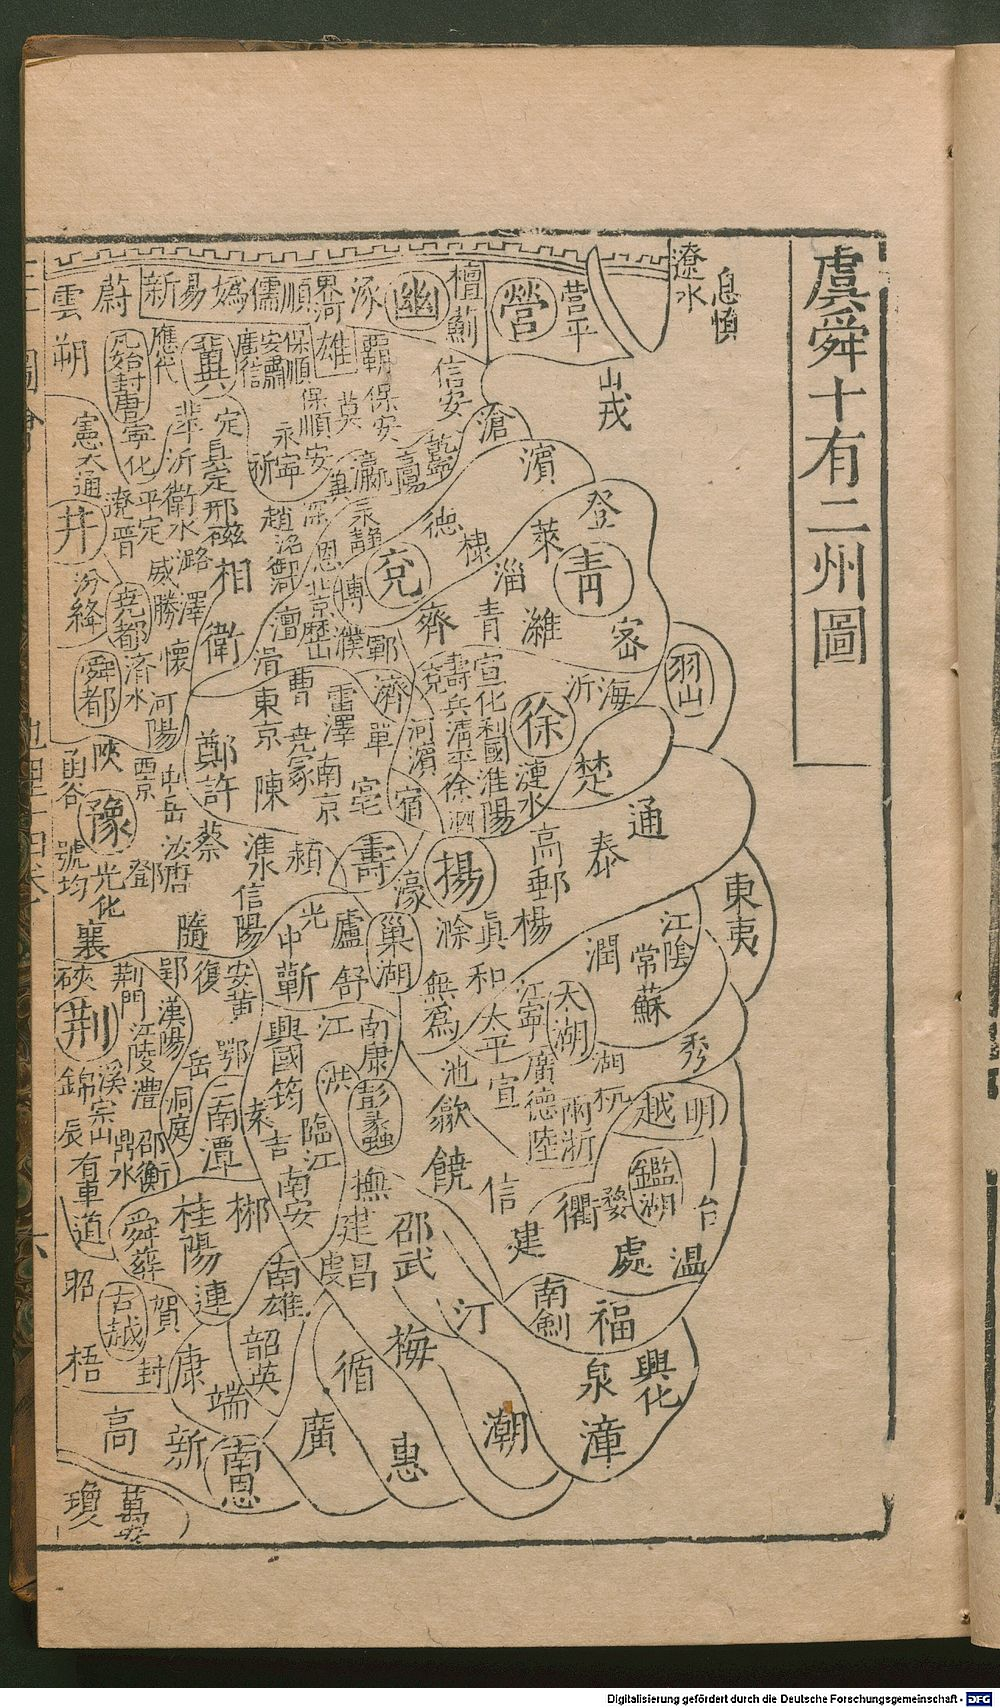 虞舜十有二州圖
遼水
息慎
營
營平
檀薊
幽
涿
界河
順
儒
媯
易
新
蔚
雲
朔
山戎
信安
霸
雄
保順
安肅
廣信
冀
應代
保安
莫
保順安
永寧
祈
定
真定
邢
磁
沂
寧化
憲
大通
滄
濱
瀛
高陽
乾寧
冀
永靜
深
趙
洺
恩
衛水
平定
遼
晉
井
登
萊
青
淄
棣
德
兗
博
北京
歷山
澶
相
潞
威勝
澤
堯都
汾
絳
密
濰
青
齊
濮
鄆
滑
衛
懷
濟水
舜都
羽山
海
沂
徐
宣化
利國
淮陽
壽
兵
清平
徐
泗
兗
河濱
濟
單
雷澤
南京
曹
堯冢
東京
陳
鄭
許
河陽
陝
西京
函谷
豫
楚
漣水
宿
亳
中岳
汝
唐
蔡
鄧
光化
虢
均
襄
通
泰
高郵
揚
壽
濠
潁
淮水
信陽
隨
東夷
楊
真
滁
巢湖
廬
光
中
蘄
舒
江陰
常
潤
蘇
和
無為
太平
江寧
太湖
安
黃
復
郢
漢陽
荆門
江陵
硤
荆
秀
湖
杭
廣德
兩浙
陸
宣
池
歙
南康
江
興國
筠
洪
彭蠡
鄂
岳
洞庭
澧
溪
宗山
錦
辰
明
越
鑑湖
台
溫
婺
衢
處
信
饒
建
臨江
吉
南安
袁
三南
潭
邵
衡
鼎水
有車
道
撫
建昌
虔
邵武
郴
桂陽
舜葬
昭
南劍
福
汀
南雄
連
賀
古越
梧
封
康
韶
英
端
梅
循
興化
泉
漳
潮
惠
廣
南恩
新
高
瓊
萬安
六
Digitalisierung gefördert durch die Deutsche Forschungsgemeinschaft - DFG